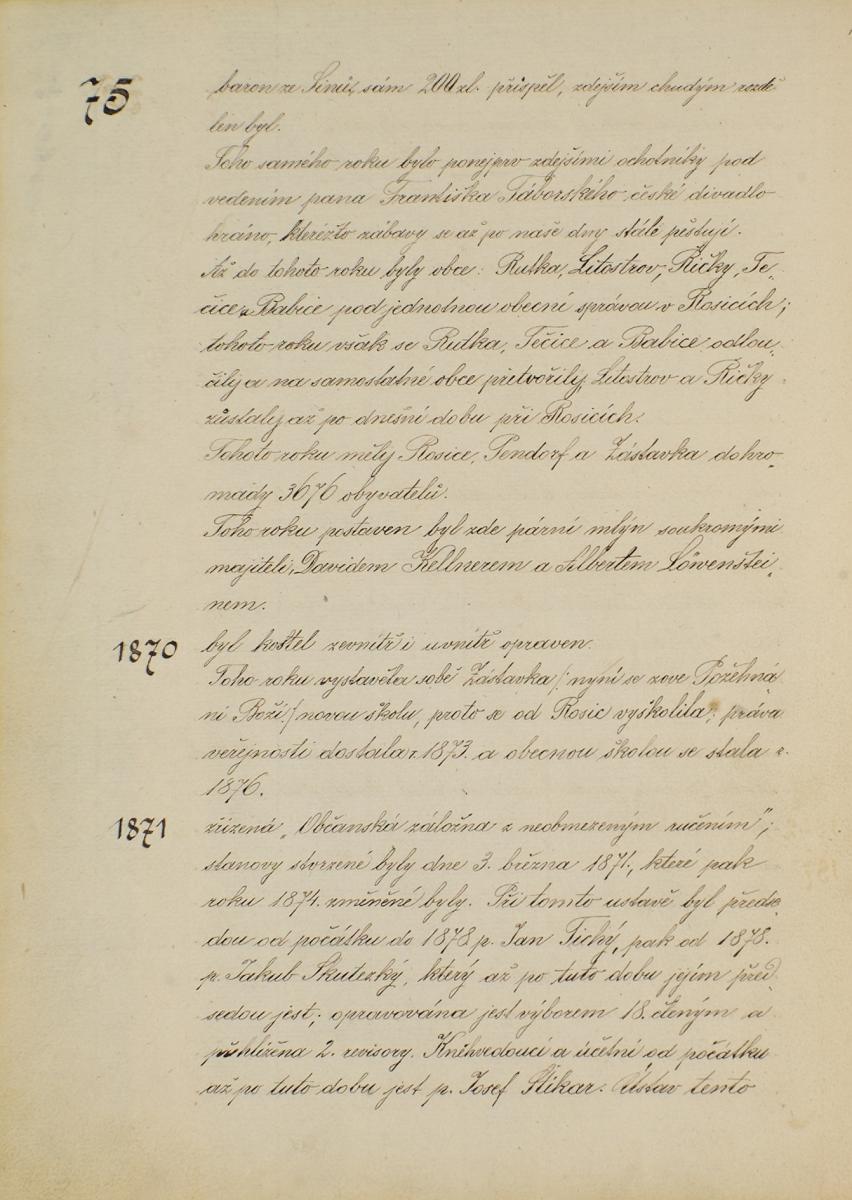 75
baron ze Sinů, sám 200 zl. přispěl, zdejším chudým rozdě
len byl.
Toho samého roku bylo ponejprv zdejšími ochotníky pod
vedením pana Františka Táborského české divadlo
hráno, kteréžto zábavy se až po naše dny stále pěstují.
Až do tohoto roku byly obce: Rutka, Litostrov, Říčky, Te„
čice a Babice pod jednotnou obecní správou v Rosicích;
tohoto roku však se Rutka, Tečice a Babice odlou„
čily a na samostatné obce přetvořily, Litostrov a Říčky
zůstaly až po dnešní dobu při Rosicích.
Tohoto roku měly Rosice, Pendorf a Zástavka dohro„
mady 3676 obyvatelů.
Toho roku postaven byl zde pární mlýn soukromými
majiteli, Davidem Kellnerem a Albertem Löwenštei„
nem.
1870 byl kostel zevnitř i uvnitř opraven.
Toho roku vystavěla sobě Zástavka /: nyní se zove Požehná
ní Boží :/ novou školu, proto se od Rosic vyškolila; práva
veřejnosti dostala r. 1873. a obecnou školou se stala r.
1876.
1871 zřízená „Občanská záložna z neobmezeným ručením";
stanovy stvrzené byly dne 3. března 1871., které pak
roku 1874. změněné byly. Při tomto ustavě byl předse„
dou od počátku do 1878 p. Jan Tichý, pak od 1878.
p. Jakub Skutezký, který až po tuto dobu jejím před„
sedou jest; opravována jest výborem 18. členým a
přihlížena 2. revisory. Kněhvedoucí a účetní od počátku
až po tuto dobu jest p. Josef Štikar. Ústav tento